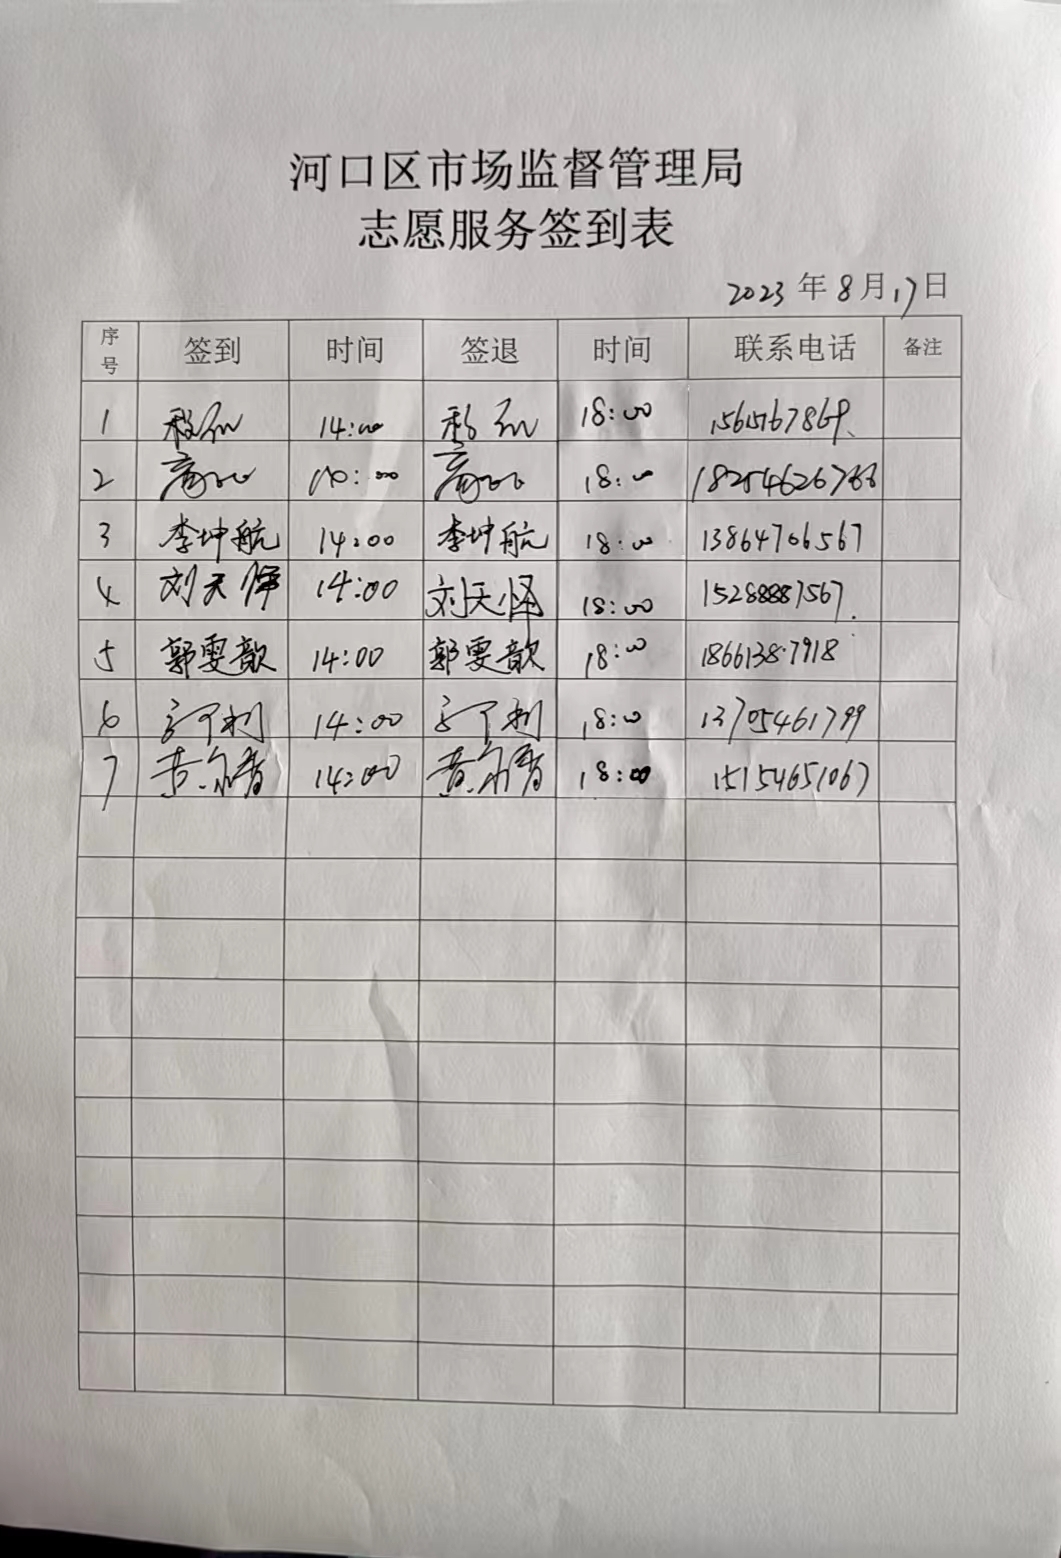 河口区市场监督管理局
志愿服务签到表
2023年8月17日
序号 签到 时间 签退 时间 联系电话 备注
1 14:00 18:00
2 18:00 18254626766
3 李坤航 14:00 李坤航 18:00 13864706567
4 刘天怿 14:00 刘天怿 18:00 15288887567
5 郭雯歆 14:00 郭雯歆 18:00 18661387918
6 14:00 18:00 13705461799
7 14:00 18:00 15154651067